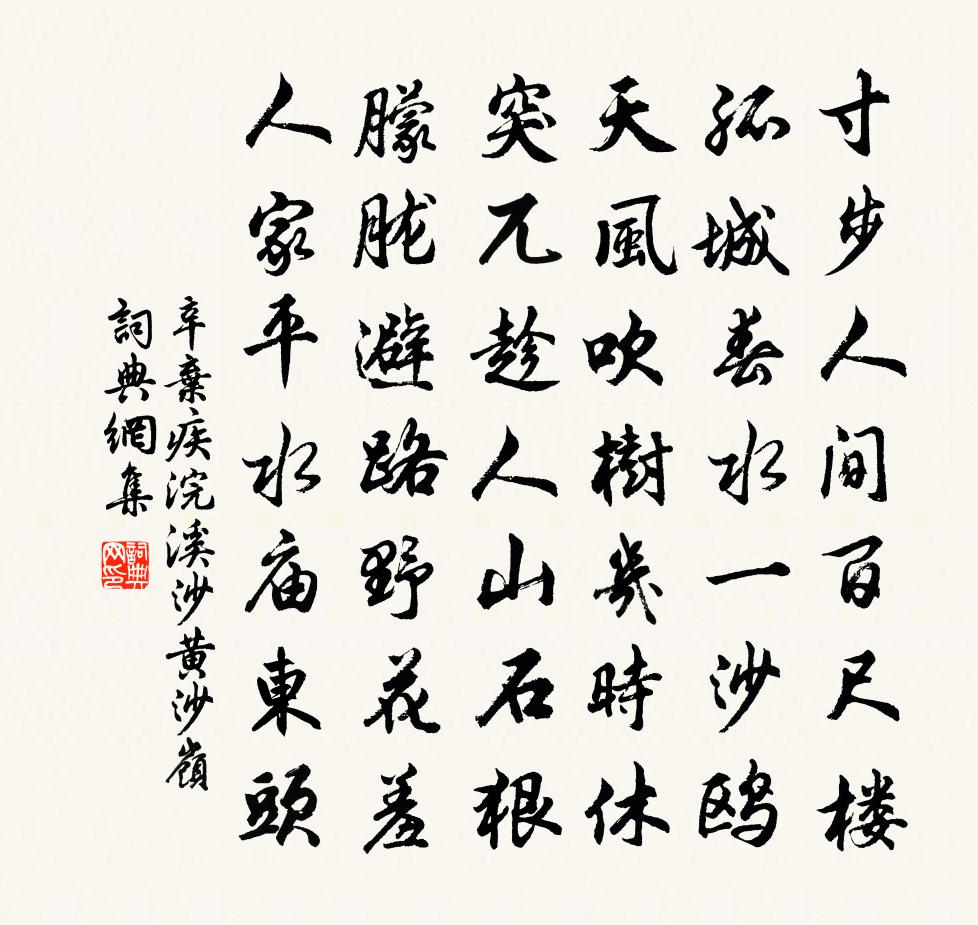 寸步人间百尺楼
孤城春水一沙鸥
天風吹樹幾時休
突兀趁人山石狠
朦朧避路野花羞
人家平水庙東頭
辛棄疾浣溪沙黄沙嶺
詞典網集
詞典网印